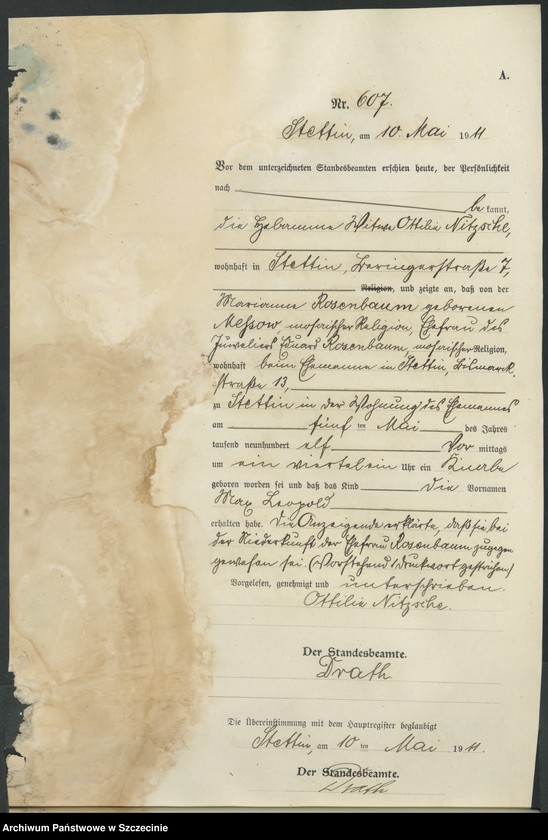 A.
Nr. 607.
Stettin, am 10. Mai 1911
Vor dem unterzeichneten Standesbeamten erschien heute, der Persönlichkeit
nach
be kannt,
die Hebamme Witwe Ottilie Nitzsche,
wohnhaft in Stettin, Beringerstraße 7,
Religion, und zeigte an, daß von der
Marianne Rosenbaum geborenen
Messow, mosaischer Religion, Ehefrau des
Juweliers Eduard Rosenbaum, mosaischer Religion,
wohnhaft beim Ehemanne in Stettin, Bismarck-
straße 13,
zu Stettin in der Wohnung des Ehemannes
am fünf ten Mai des Jahres
tausend neunhundert elf Vor mittags
um ein viertel ein Uhr ein Knabe
geboren worden sei und daß das Kind die Vornamen
Max Leopold
erhalten habe. Die Anzeigende erklärte, daß sie bei
der Niederkunft der Ehefrau Rosenbaum zugegen
gewesen sei. (Vorstehend 1 Druckwort gestrichen)
Vorgelesen, genehmigt und unterschrieben.
Ottilie Nitzsche.
Der Standesbeamte.
Drath
Die Übereinstimmung mit dem Hauptregister beglaubigt
Stettin, am 10 ten Mai 1911.
Der Standesbeamte.
Drath
Archiwum Państwowe w Szczecinie